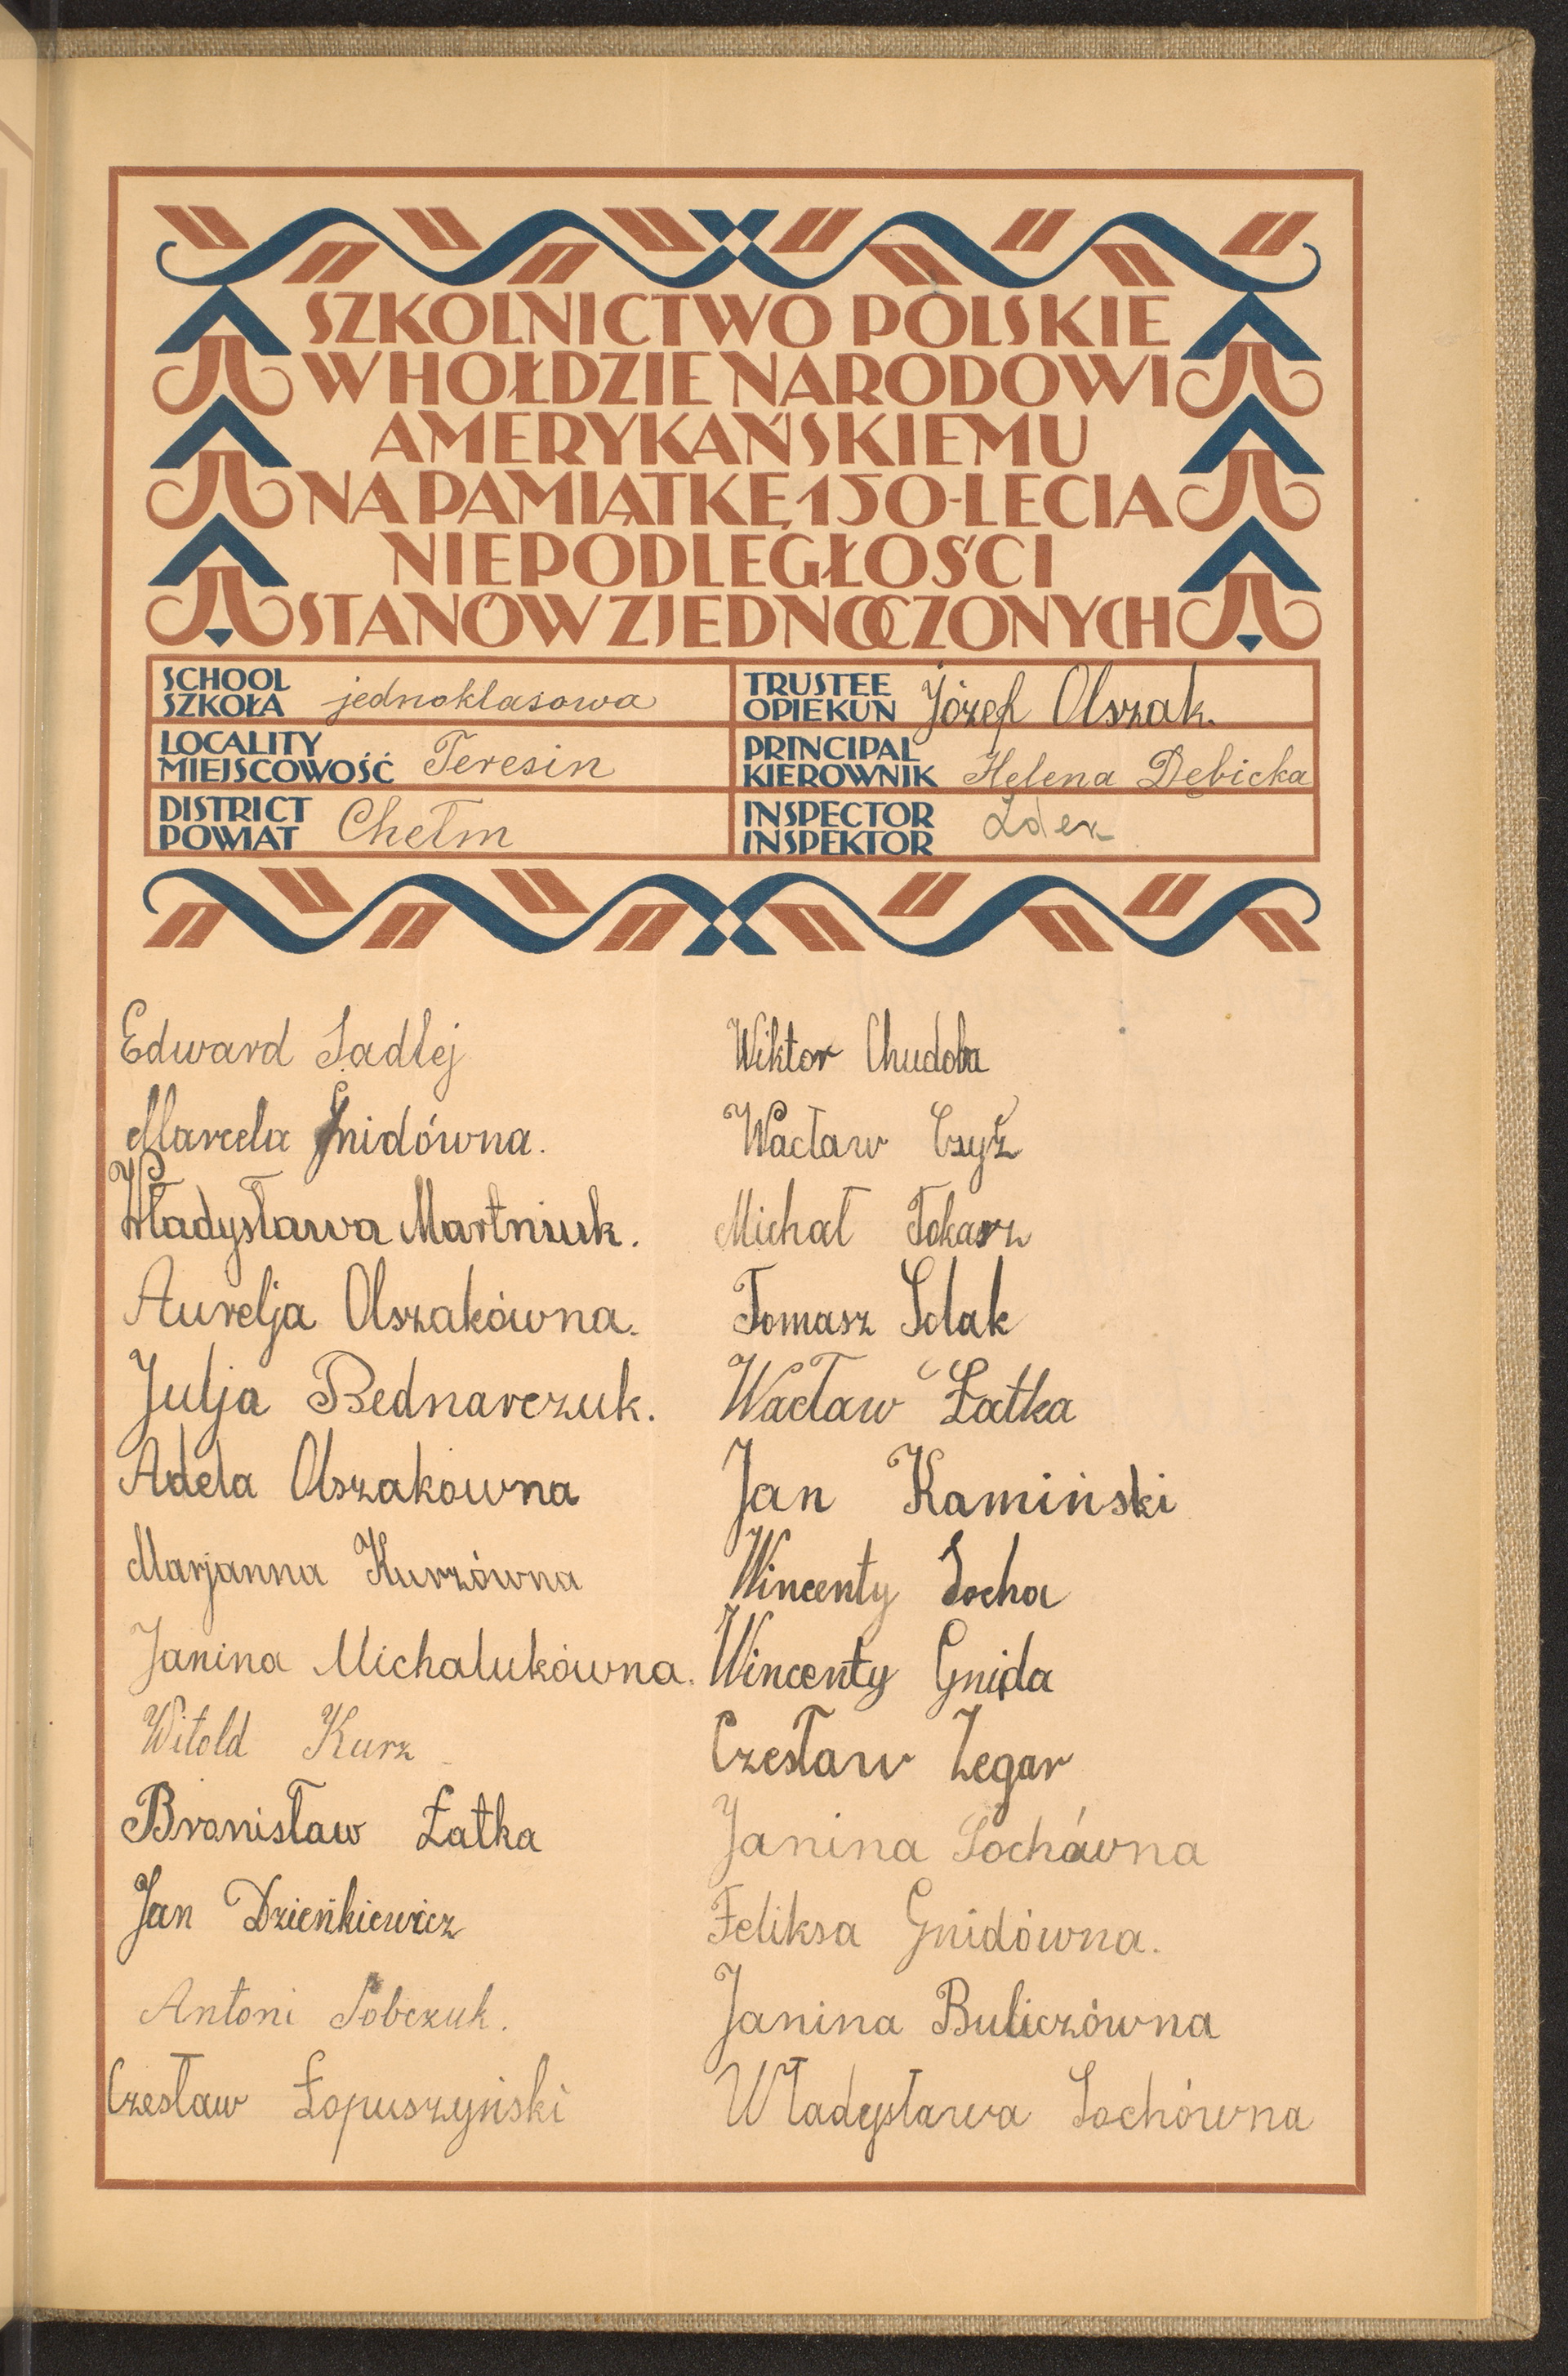 SZKOLNICTWO POLSKIE
W HOŁDZIE NARODOWI
AMERYKAŃSKIEMU
NA PAMIĄTKĘ 150-LECIA
NIEPODLEGŁOŚCI
STANÓW ZJEDNOCZONYCH
SCHOOL
SZKOŁA jednoklasowa
TRUSTEE
OPIEKUN Józef Olszak.
LOCALITY
MIEJSCOWOŚĆ Teresin
PRINCIPAL
KIEROWNIK Helena Dębicka
DISTRICT
POWIAT Chełm
INSPECTOR
INSPEKTOR
Edward Sadlej
Marcela Gnidówna.
Władysława Martniuk.
Aurelja Olszakówna.
Julja Bednarczuk.
Adela Olszakówna
Marjanna Kurzówna
Janina Michalukówna.
Witold Kurz
Bronisław Łatka
Jan Dzieńkiewicz
Antoni Sobczuk.
Czesław Łopuszyński
Wiktor Chudoba
Wacław Czyż
Michał Tokarz
Tomasz Solak
Wacław Łatka
Jan Kamiński
Wincenty Socha
Wincenty Gnida
Czesław Zegar
Janina Sochówna
Feliksa Gnidówna.
Janina Buliczówna
Władysława Sochówna